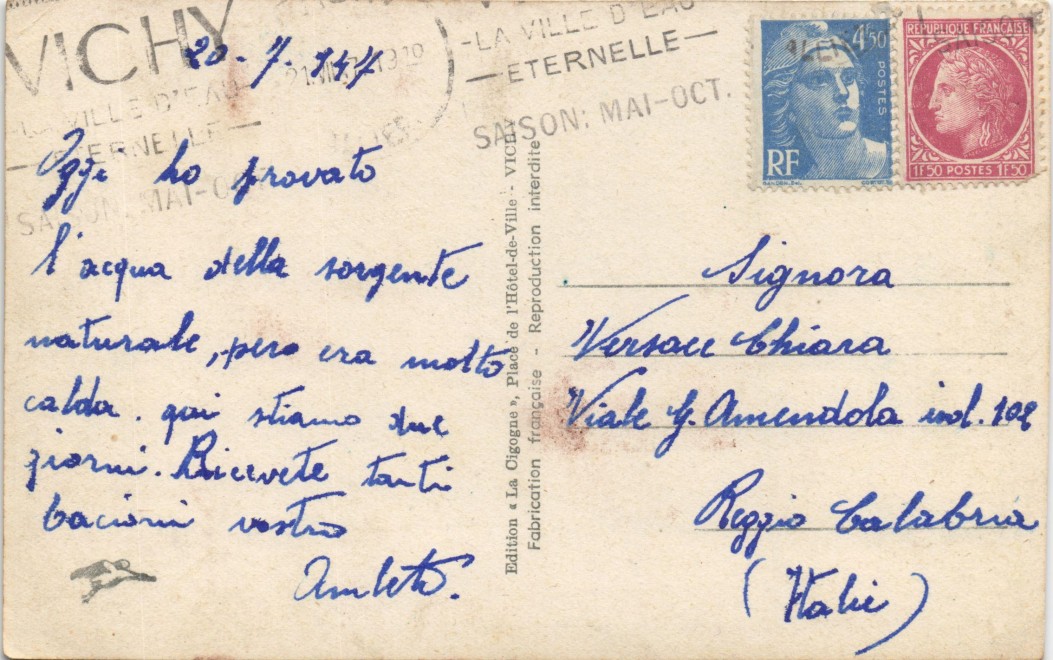 VICHY
LA VILLE D'EAU
ETERNELLE
SAISON: MAI-OCT.
LA VILLE D'EAU
ETERNELLE
SAISON: MAI-OCT.
20-7-947
Oggi ho provato
l'acqua della sorgente
naturale, pero era molto
calda. qui stiamo due
giorni. Ricevete tanti
bacioni vostro
Amleto.
Edition « La Cigogne », Place de l'Hôtel-de-Ville - VICHY
Fabrication française - Reproduction interdite
4f50
POSTES
RF
REPUBLIQUE FRANÇAISE
1F50 POSTES 1F50
Signora
Versace Chiara
Viale G. Amendola isol. 102
Reggio Calabria
(Italie)